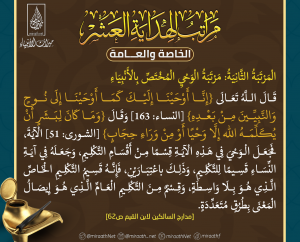 مراتب الهداية العشر
الخاصة والعامة
ميراث الأنبياء
المَرْتَبَةُ الثَّانِيَةُ: مَرْتَبَةُ الْوَحْيِ الْمُخْتَصِّ بِالْأَنْبِيَاءِ
قَالَ اللَّهُ تَعَالَى {إِنَّا أَوْحَيْنَا إِلَيْكَ كَمَا أَوْحَيْنَا إِلَى نُوحٍ
وَالنَّبِيِّينَ مِنْ بَعْدِهِ} [النساء: 163] وَقَالَ {وَمَا كَانَ لِبَشَرٍ أَنْ
يُكَلِّمَهُ اللَّهُ إِلَّا وَحْيًا أَوْ مِنْ وَرَاءِ حِجَابٍ} [الشورى: 51] الْآيَةَ،
فَجَعَلَ الْوَحْيَ فِي هَذِهِ الْآيَةِ قِسْمًا مِنْ أَقْسَامِ التَّكْلِيمِ، وَجَعَلَهُ فِي آيَةِ
النِّسَاءِ قَسِيمًا لِلتَّكْلِيمِ، وَذَلِكَ بِاعْتِبَارَيْنِ، فَإِنَّهُ قَسِيمُ التَّكْلِيمِ الْخَاصِّ
الَّذِي هُوَ بِلَا وَاسِطَةٍ، وَقِسْمٌ مِنَ التَّكْلِيمِ الْعَامِّ الَّذِي هُوَ إِيصَالُ
الْمَعْنَى بِطُرُقٍ مُتَعَدِّدَةٍ.
[مدارج السالكين لابن القيم ص62]
@miraathNet @miraath.net @miraathf